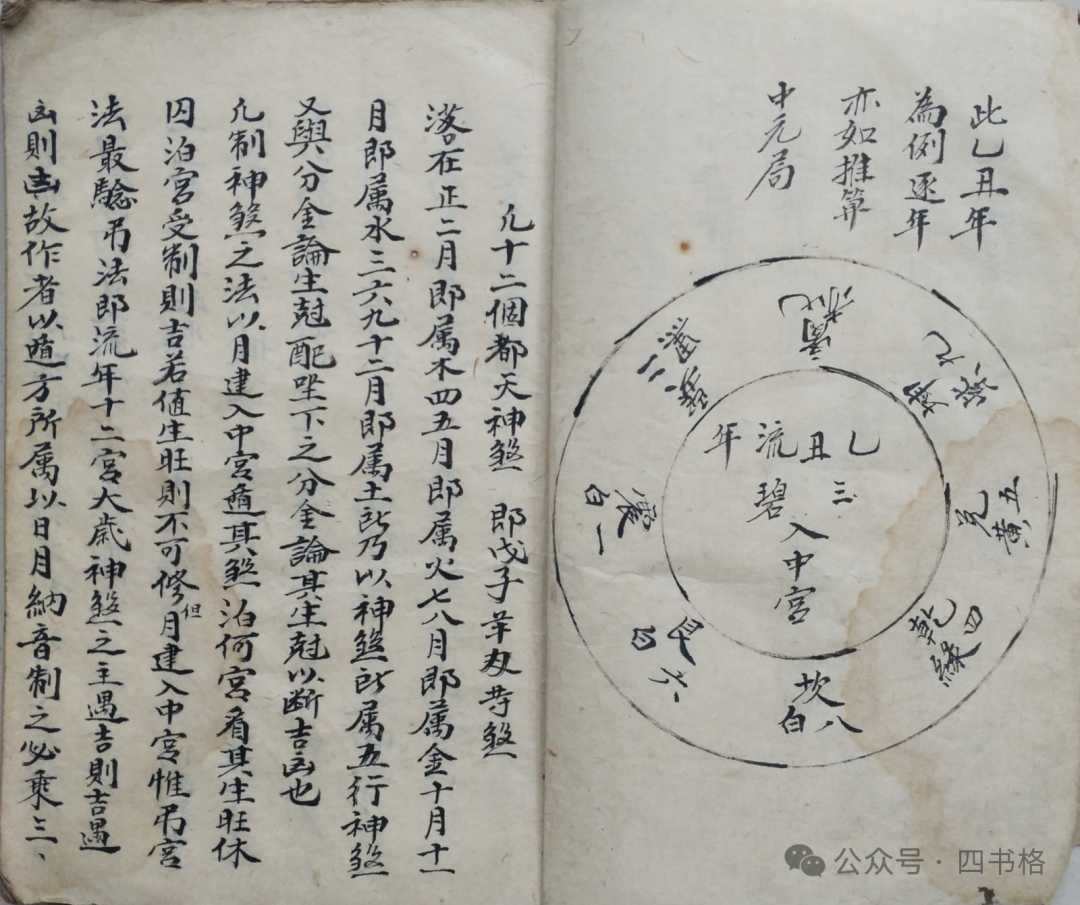 此乙丑年
為例逐年
亦如推算
中元局
乙丑流年
三碧
入中宮
離
九紫
坤
兌
五黃
乾
四綠
坎
八白
艮
六白
震
一白
巽
二黑
凢十二個都天神煞 即戊子
落在正二月即属木四五月即属火七八月即属金十月十一
月即属水三六九十二月即属土此乃以神煞所属五行神煞
又與分金論生尅配坐下之分金論其生尅以断吉凶也
凢制神煞之法以月建入中宮遁其煞泊何宮看其生旺休
囚泊宮受制則吉若值生旺則不可修但月建入中宮惟弔宮
法最驗弔法即流年十二宮大歲神煞之主遇吉則吉遇
凶則凶故作者以遁方所属以日月納音制之必乘三、
公众号·四书格